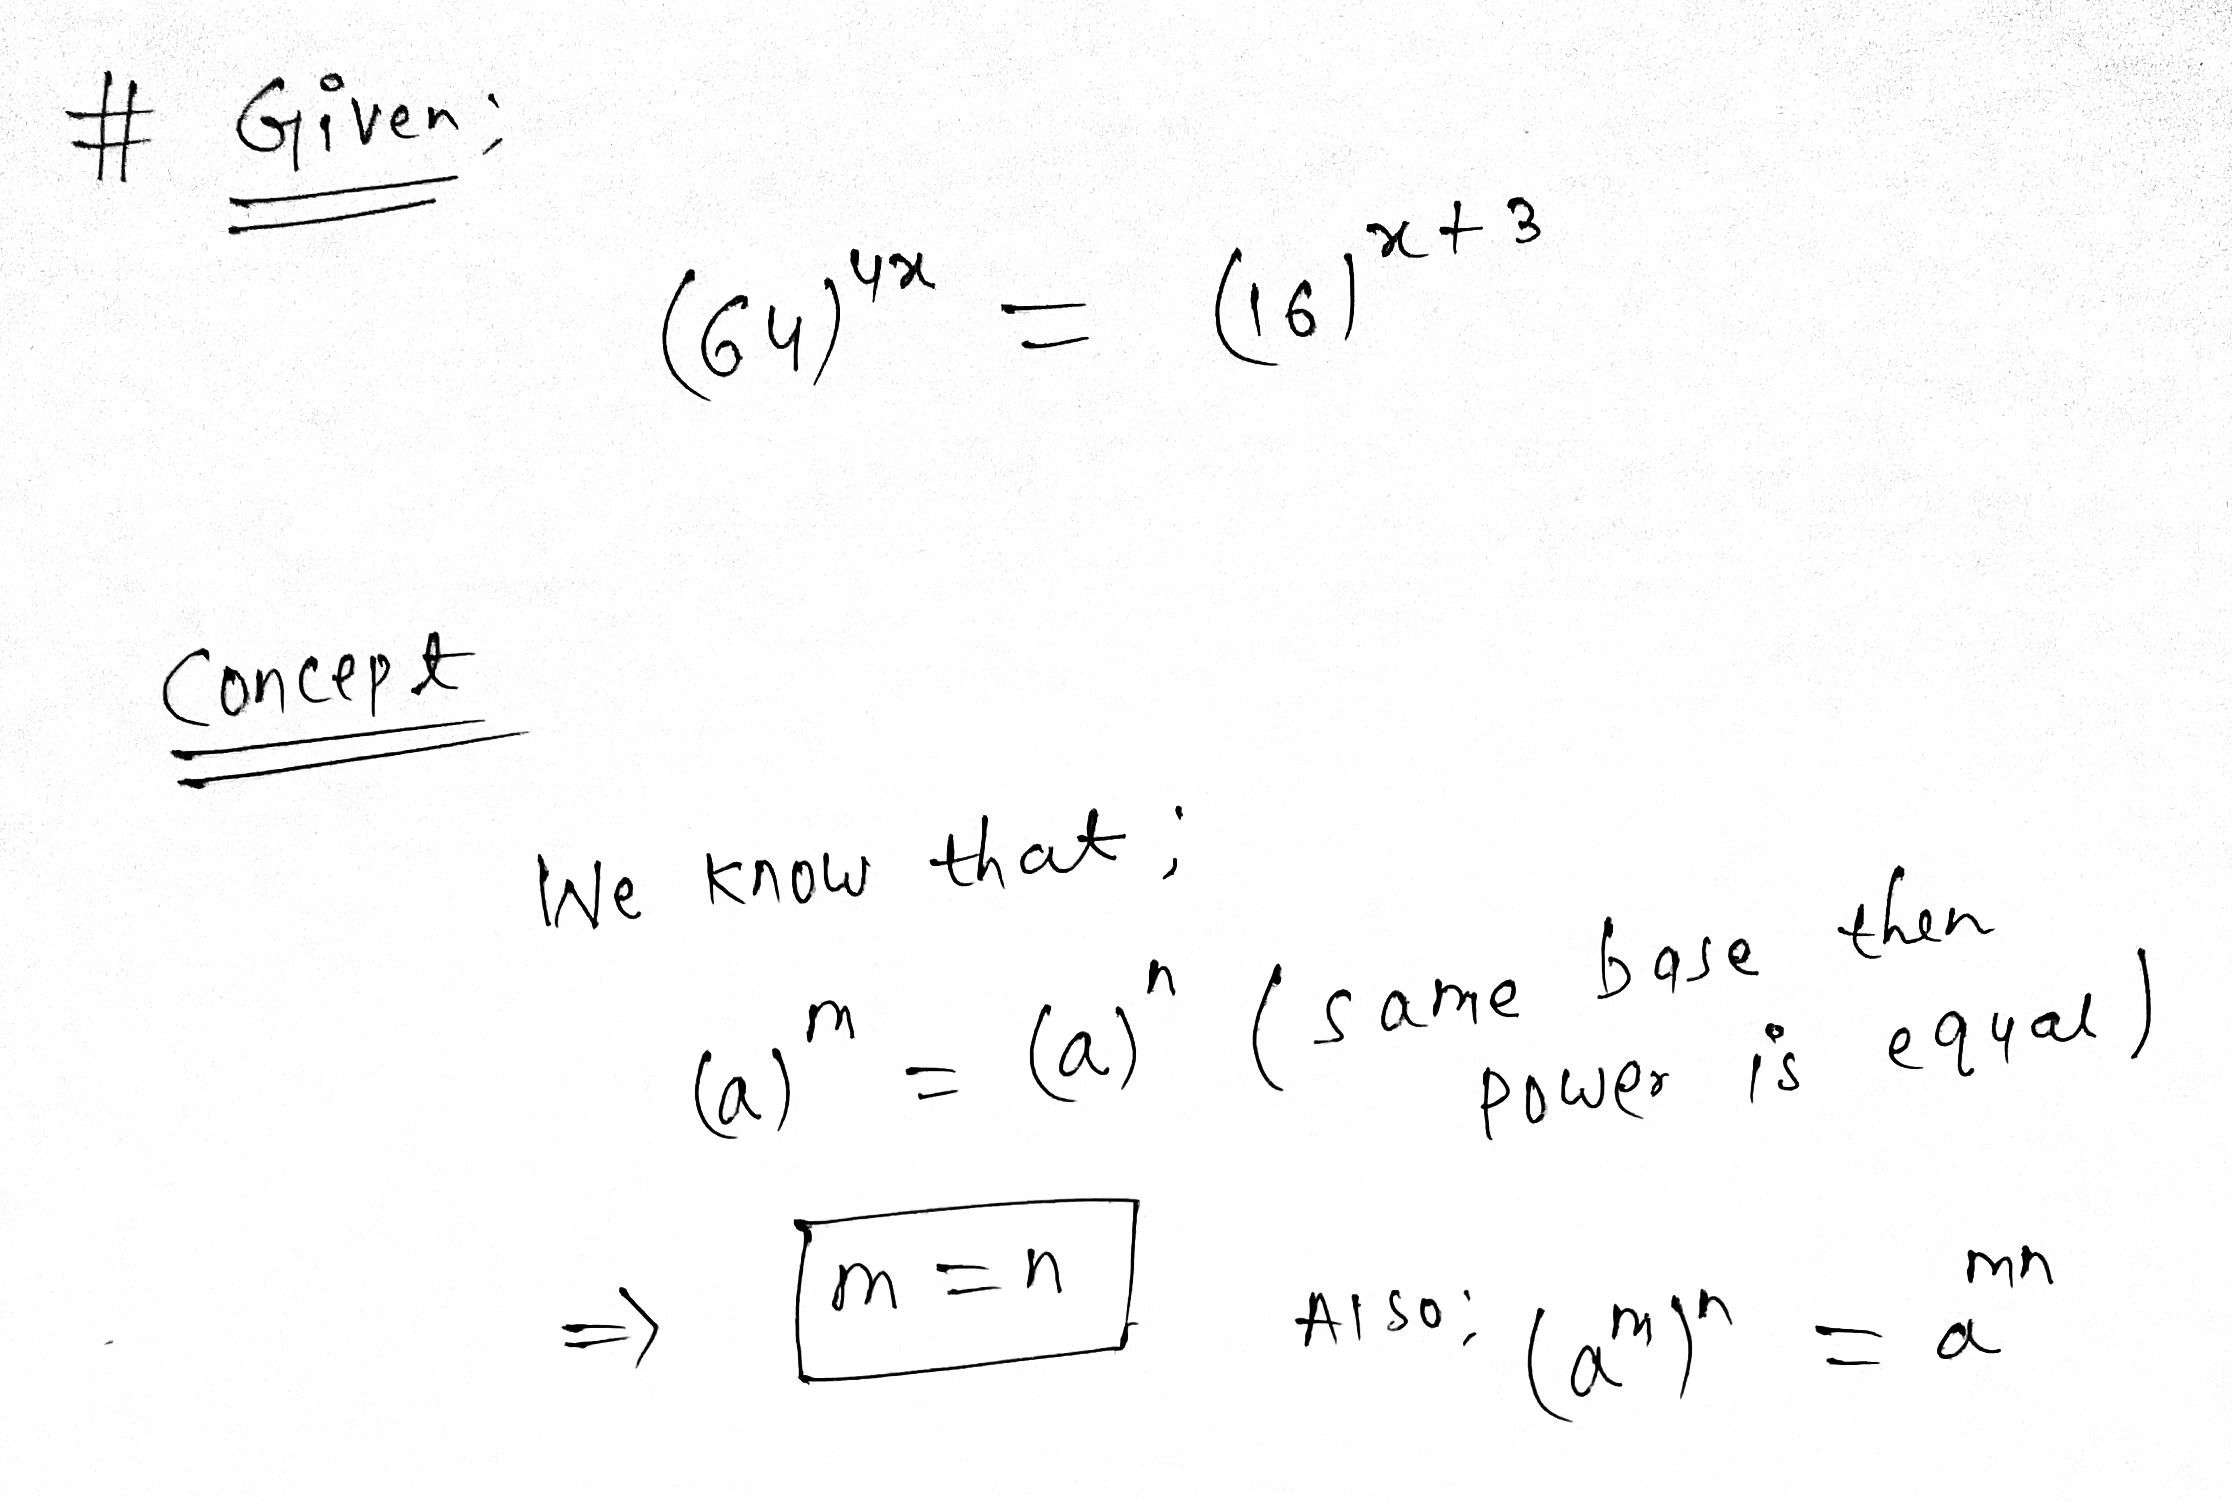 # Given;
(64)^{4x} = (16)^{x+3}
Concept
We know that;
(a)^m = (a)^n (same base then
power is equal)
⇒ m = n Also; (a^m)^n = a^{mn}